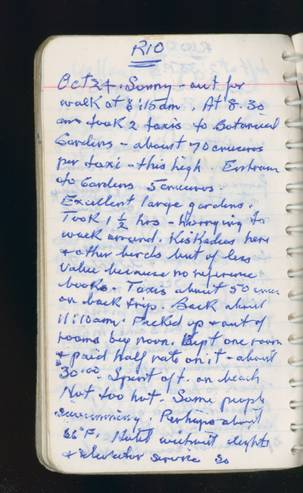 RIO
Oct 24. Sunny - out for
walk at 8:15am. At 8.30
am took 2 taxis to Botanical
Gardens - about 70 cruceros
per taxi - this high. Entrance
to Gardens 5 cruceros.
Excellent large gardens.
Took 1 1/2 hrs - hurrying to
walk around. Kiskadees here
& other birds but of less
value because no reference
books. Taxis about 50 cruc
on back trip. Back about
11:10am. Packed up & out of
rooms by noon. Kept one room
& paid half rate on it - about
30.00. Spent aft. on beach
Not too hot. Some people
swimming. Perhaps about
F. Hotel without lights
& elevator service so